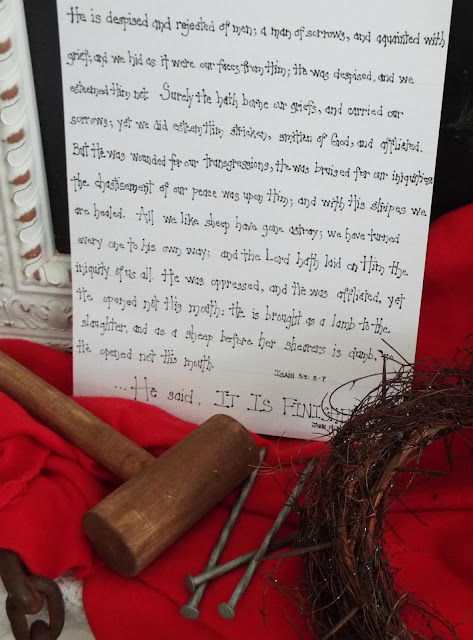 He is despised and rejected of men; a man of sorrows, and aquainted with
grief; and we hid as it were our faces from Him; He was despised, and we
esteemed Him not. Surely He hath borne our griefs, and carried our
sorrows; yet we did esteem Him stricken, smitten of God, and afflicted.
But He was wounded for our transgressions, He was bruised for our iniquities:
the chastisement of our peace was upon Him; and with His stripes we
are healed. All we like sheep have gone astray; we have turned
every one to his own way; and the Lord hath laid on Him the
iniquity of us all. He was oppressed, and He was afflicted, yet
He opened not His mouth: He is brought as a lamb to the
slaughter, and as a sheep before her shearers is dumb, so
He opened not His mouth.
Isaiah 53:3-7
...He said, IT IS FINISHED
John